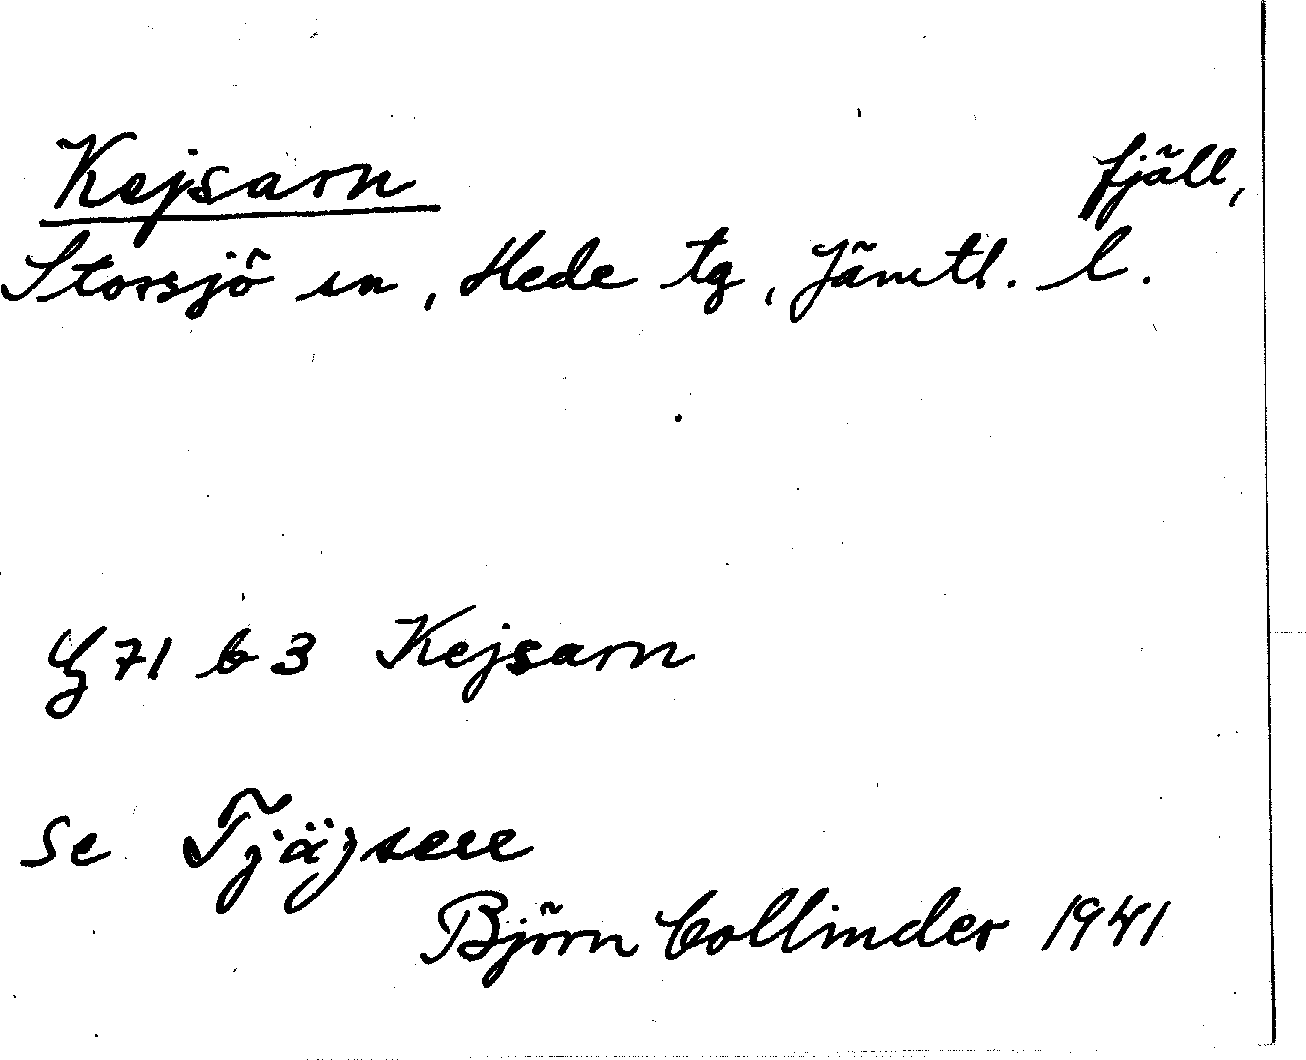 Kejsarn fjäll,
Storsjö sn, Hede tg, Jämtl. l.
71 b 3 Kejsarn
Se Tjäjsere
Björn Collinder 1941